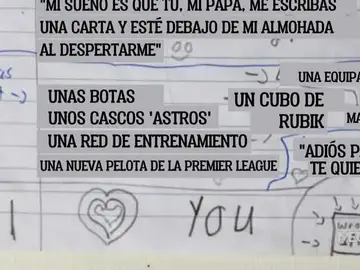 "MI SUEÑO ES QUE TÚ, MI PAPÁ, ME ESCRIBAS
UNA CARTA Y ESTÉ DEBAJO DE MI ALMOHADA
AL DESPERTARME"
UNA EQUIPA
UNAS BOTAS
UNOS CASCOS 'ASTROS'
UN CUBO DE
RUBIK
MA
UNA RED DE ENTRENAMIENTO
UNA NUEVA PELOTA DE LA PREMIER LEAGUE
"ADIÓS P
TE QUIE
I YOU